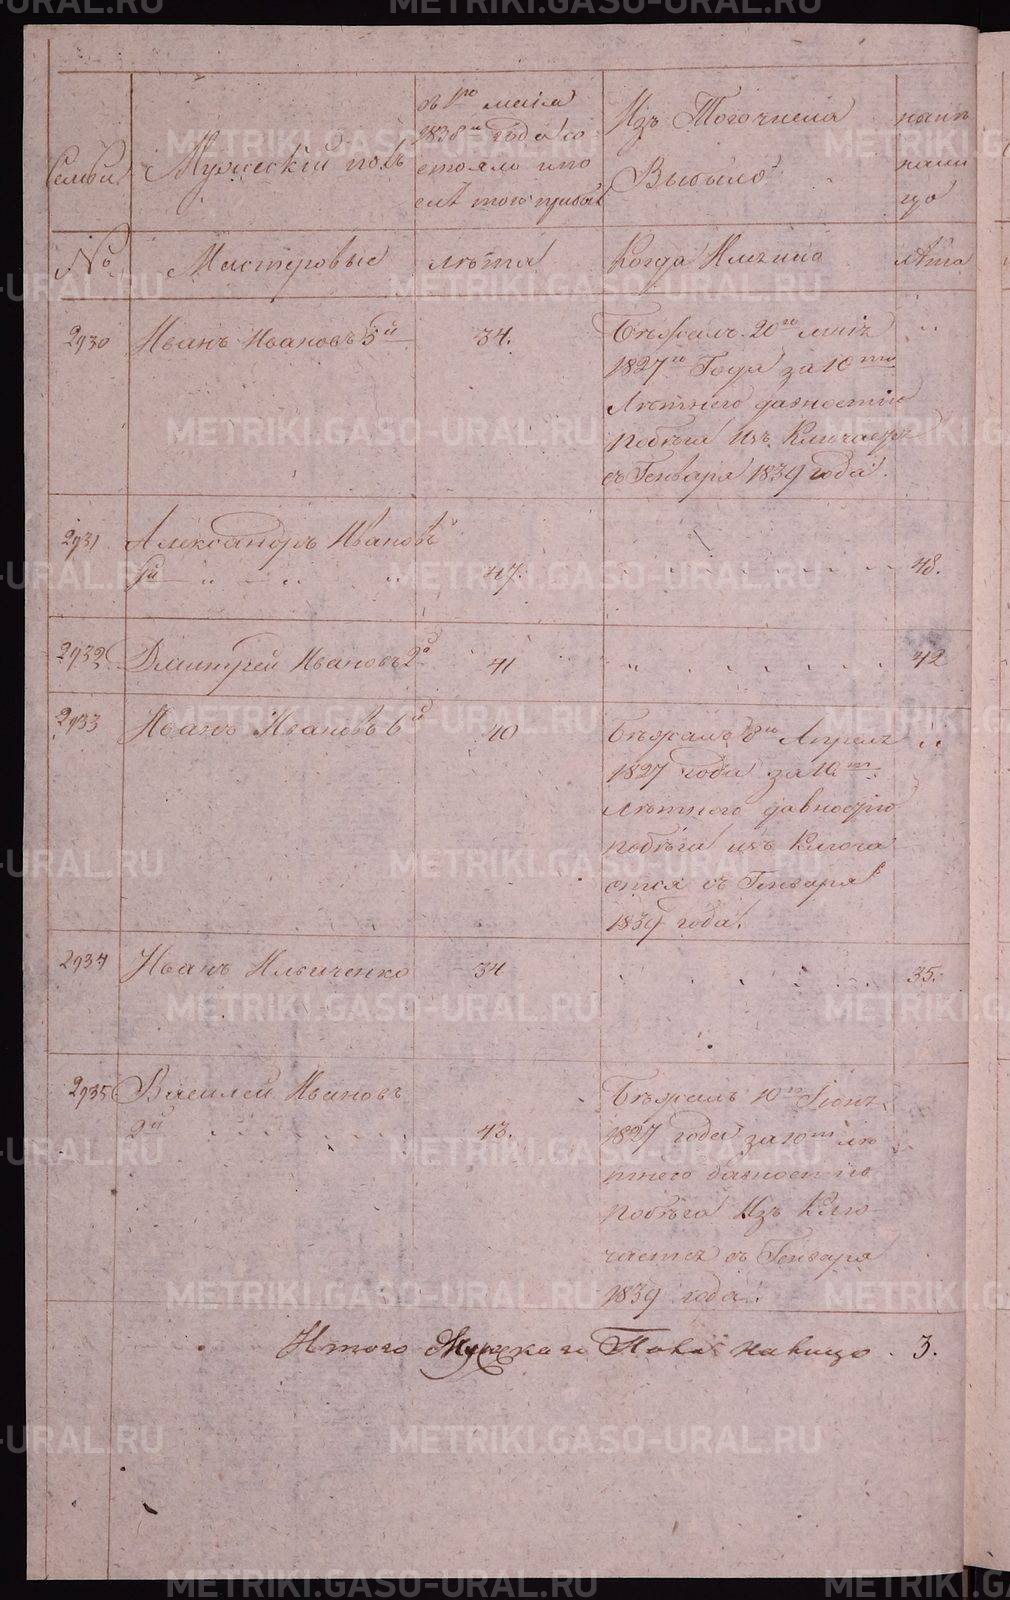 Семьи
Мужеский полъ
съ 1го маія
1838го года со
стояло и по
слѣ того прибы
Изъ Того числа
Выбыло
налицо
№
Мастеровые
лѣта
Когда Имянно
лѣта
2930 Иванъ Ивановъ 5й 34.
Бѣжалъ 20го маіа
1827го Года за 10тио
Лѣтнего давностію
побѣга Изъ Ключается
съ Генваря 1839 года.
2931 Александръ Ивановъ
1й 47. 48.
2932 Дмитрей Ивановъ 2й 41 42
2933 Иванъ Ивановъ 6й 40
Бѣжалъ 8го Апреля
1827 года за 10ти
Лѣтного давностію
побѣга изъ Ключа
ется съ Генваря
1839 года.
2934 Иванъ Ильиченко 34 35.
2935 Василей Ивановъ
2й 43.
Бѣжалъ 10го Іюня
1827 года за 10ти лѣ
тнего давностію
побѣга Изъ Клю
чается съ Генваря
1839 года.
Итого Мужска го Пола налицо 3.
METRIKI.GASO-URAL.RU